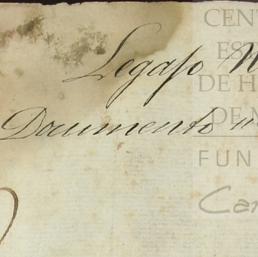 Legajo N
CENT
ES
DE H
Documento n
DE M
FUN
Car